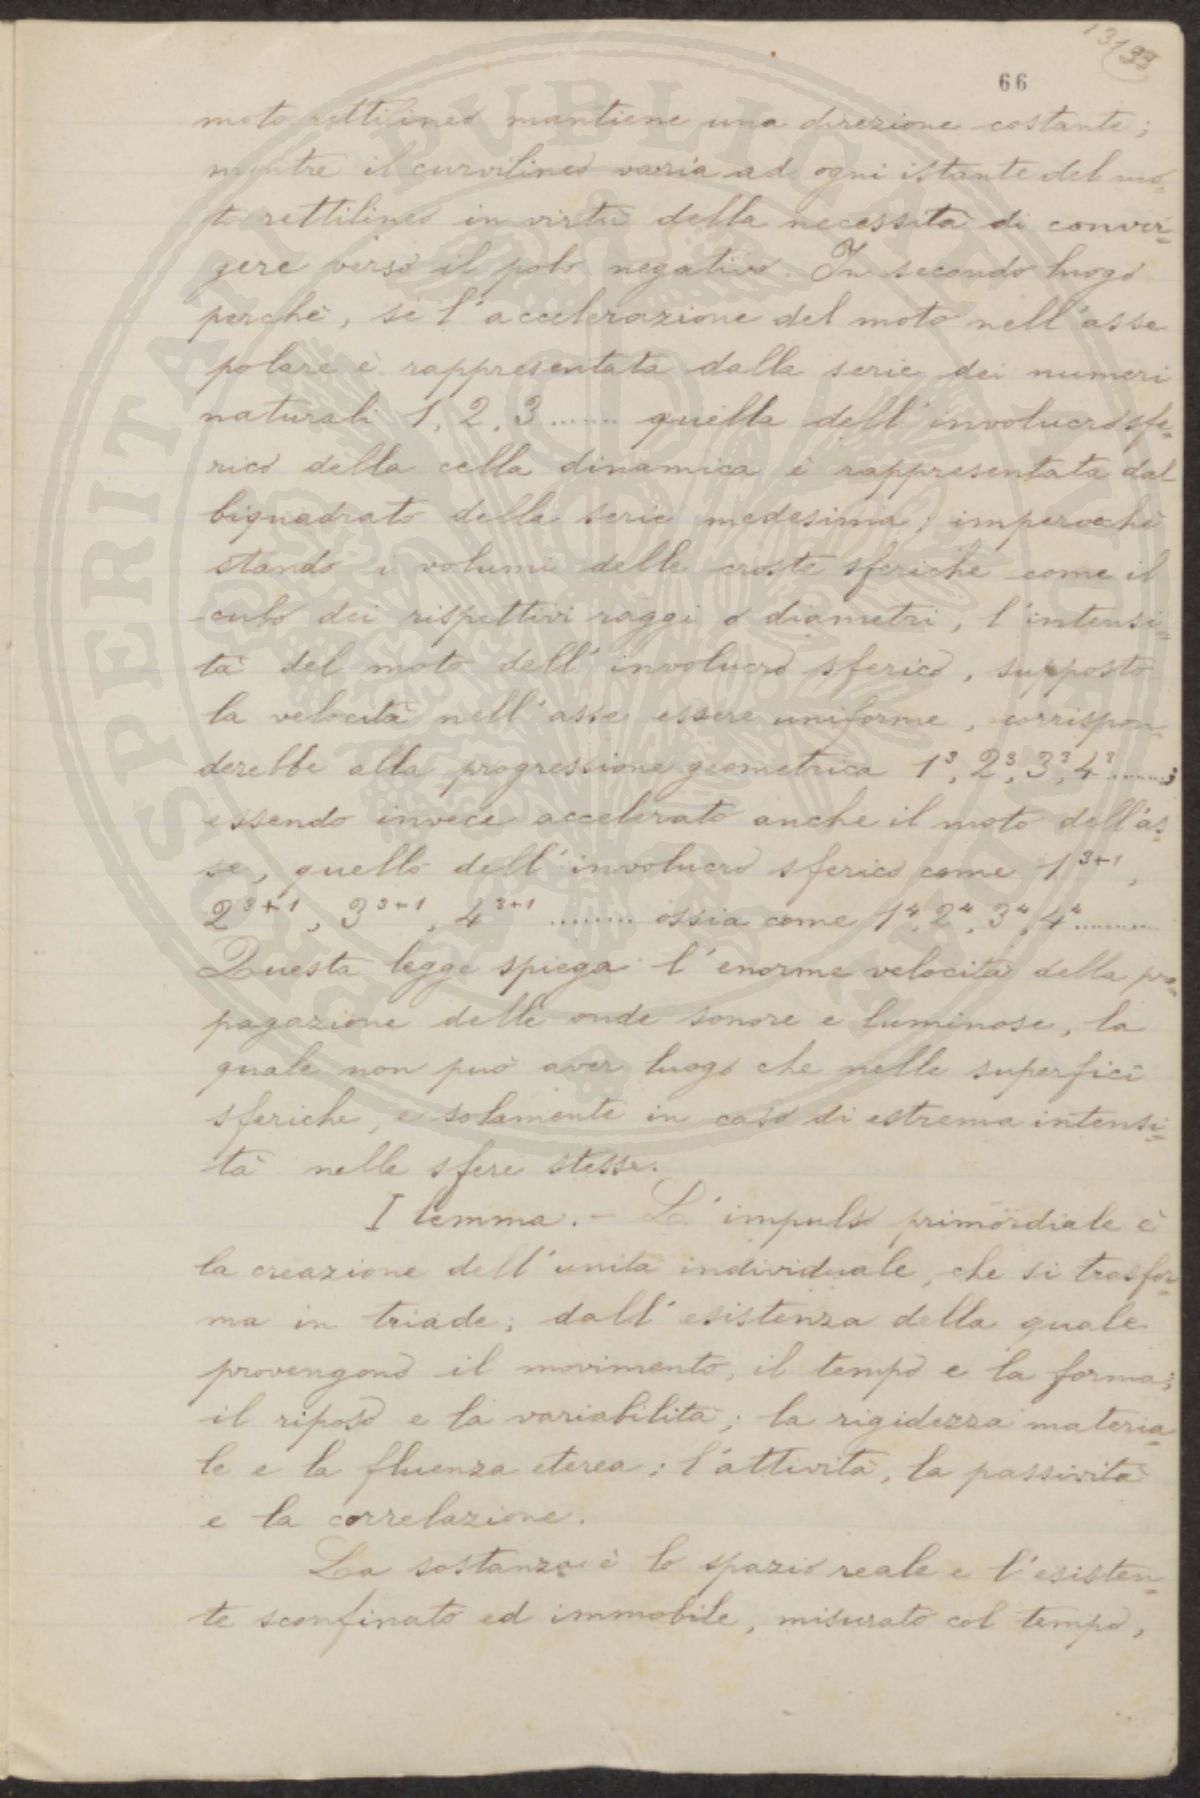 66
moto rettilineo mantiene una direzione costante;
mentre il curvilineo varia ad ogni istante del mo-
to rettilineo in virtù della necessità di conver-
gere verso il polo negativo. In secondo luogo
perchè, se l'accelerazione del moto nell'asse
polare è rappresentata dalla serie dei numeri
naturali 1, 2, 3 ...... quella dell'involucro sfe-
rico della cella dinamica è rappresentata dal
biquadrato della serie medesima; imperochè
stando i volumi delle croste sferiche come il
cubo dei rispettivi raggi o diametri, l'intensi-
tà del moto dell'involucro sferico, supposto
la velocità nell'asse essere uniforme, corrispon-
derebbe alla progressione geometrica 1³, 2³, 3³, 4³ ......;
essendo invece accelerato anche il moto dell'as-
se, quello dell'involucro sferico come 1³⁺¹,
2³⁺¹, 3³⁺¹, 4³⁺¹ ........ ossia come 1⁴, 2⁴, 3⁴, 4⁴ .........
Questa legge spiega l'enorme velocità della pro-
pagazione delle onde sonore e luminose, la
quale non può aver luogo che nelle superfici
sferiche, e solamente in caso di estrema intensi-
tà nelle sfere stesse.
I lemma. - L'impulso primordiale è
la creazione dell'unità individuale, che si trasfor-
ma in triade; dall'esistenza della quale
provengono il movimento, il tempo e la forma;
il riposo e la variabilità; la rigidezza materia-
le e la fluenza eterea; l'attività, la passività
e la correlazione.
La sostanza è lo spazio reale e l'esisten-
te sconfinato ed immobile, misurato col tempo,
SPERITATI PVBLICAE